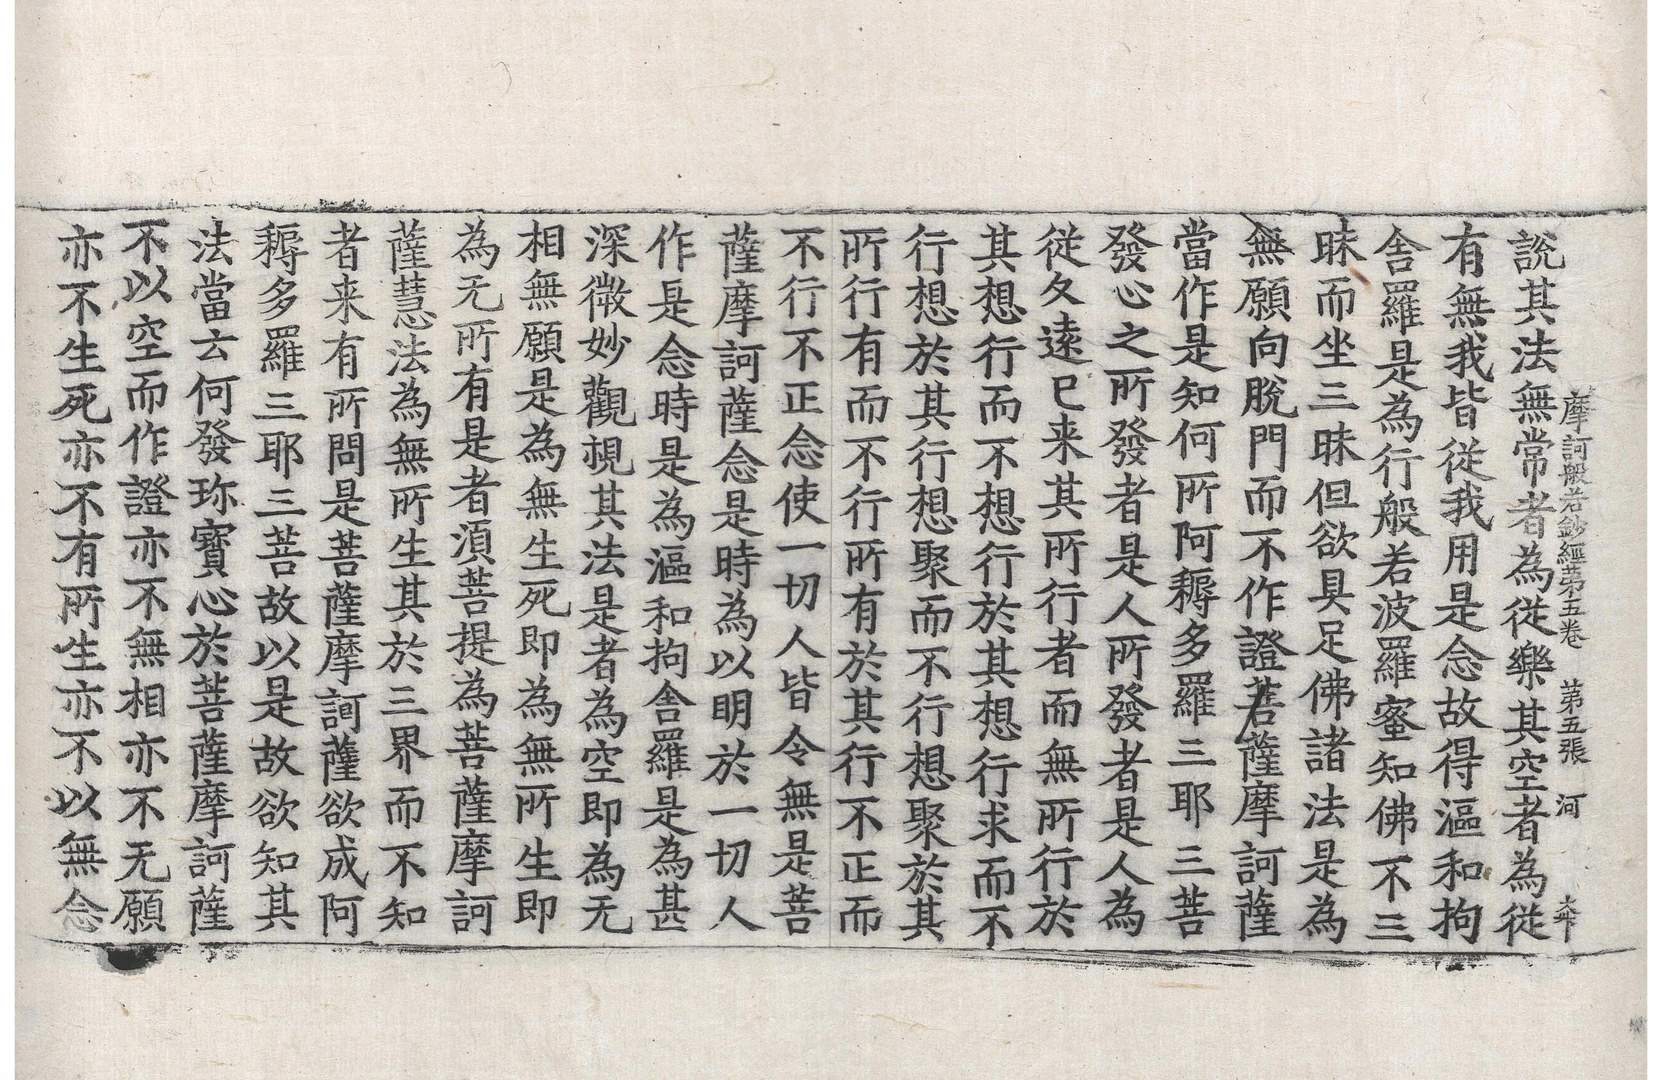 摩訶般若鈔經第五卷 第五張 河
說其法無常者為從樂其空者為從
有無我皆從我用是念故得漚和拘
舍羅是為行般若波羅蜜知佛不三
昧而坐三昧但欲具足佛諸法是為
無願向脫門而不作證菩薩摩訶薩
當作是知何所阿耨多羅三耶三菩
發心之所發者是人所發者是人為
從久遠已来其所行者而無所行於
其想行而不想行於其想行求而不
行想於其行想聚而不行想聚於其
所行有而不行所有於其行不正而
不行不正念使一切人皆令無是菩
薩摩訶薩念是時為以明於一切人
作是念時是為漚和拘舍羅是為甚
深微妙觀視其法是者為空即為无
相無願是為無生死即為無所生即
為无所有是者湏菩提為菩薩摩訶
薩慧法為無所生其於三界而不知
者来有所問是菩薩摩訶薩欲成阿
耨多羅三耶三菩故以是故欲知其
法當云何發珎寶心於菩薩摩訶薩
不以空而作證亦不無相亦不无願
亦不生死亦不有所生亦不以無念